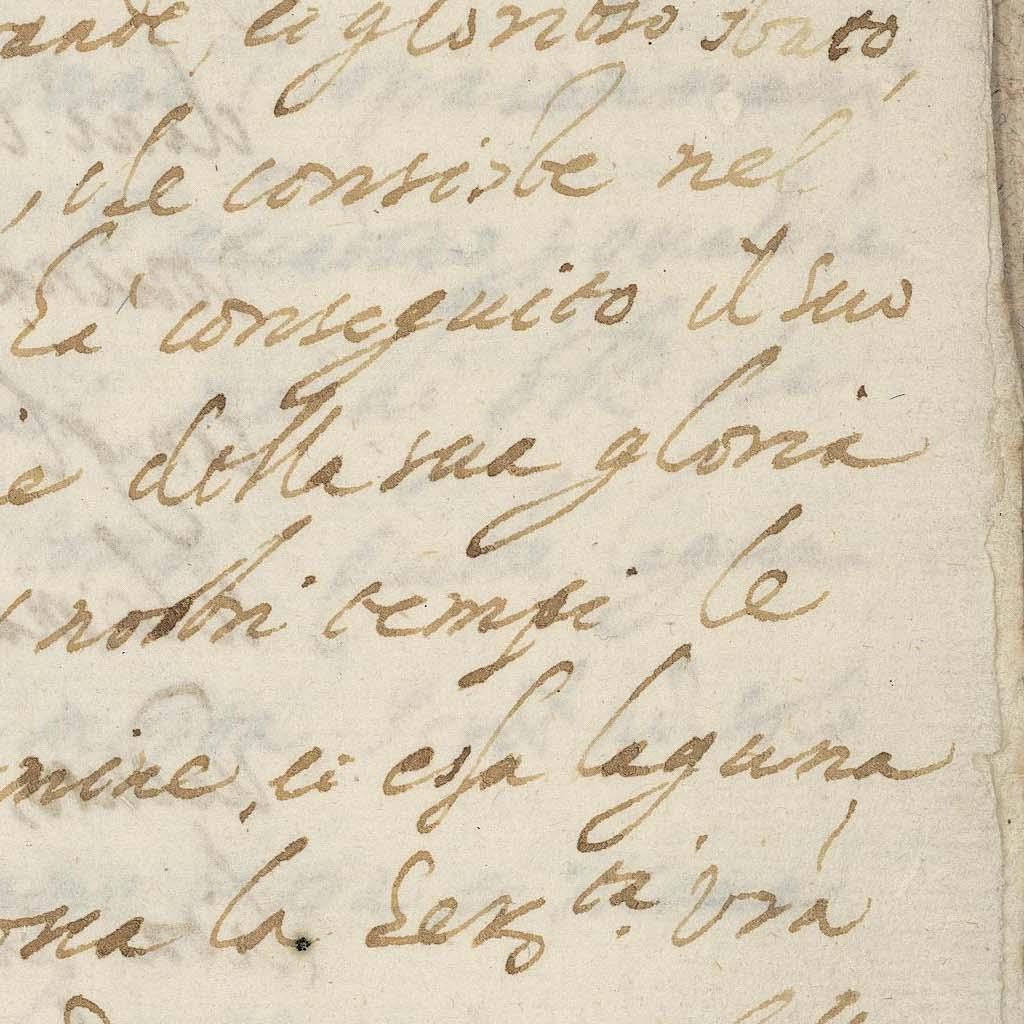 ande, et glorioso stato,
, che consiste nel
ha conseguito il suo
e della sua gloria
nostri tempi le
, et essa laguna
la Ser.ta Vrã